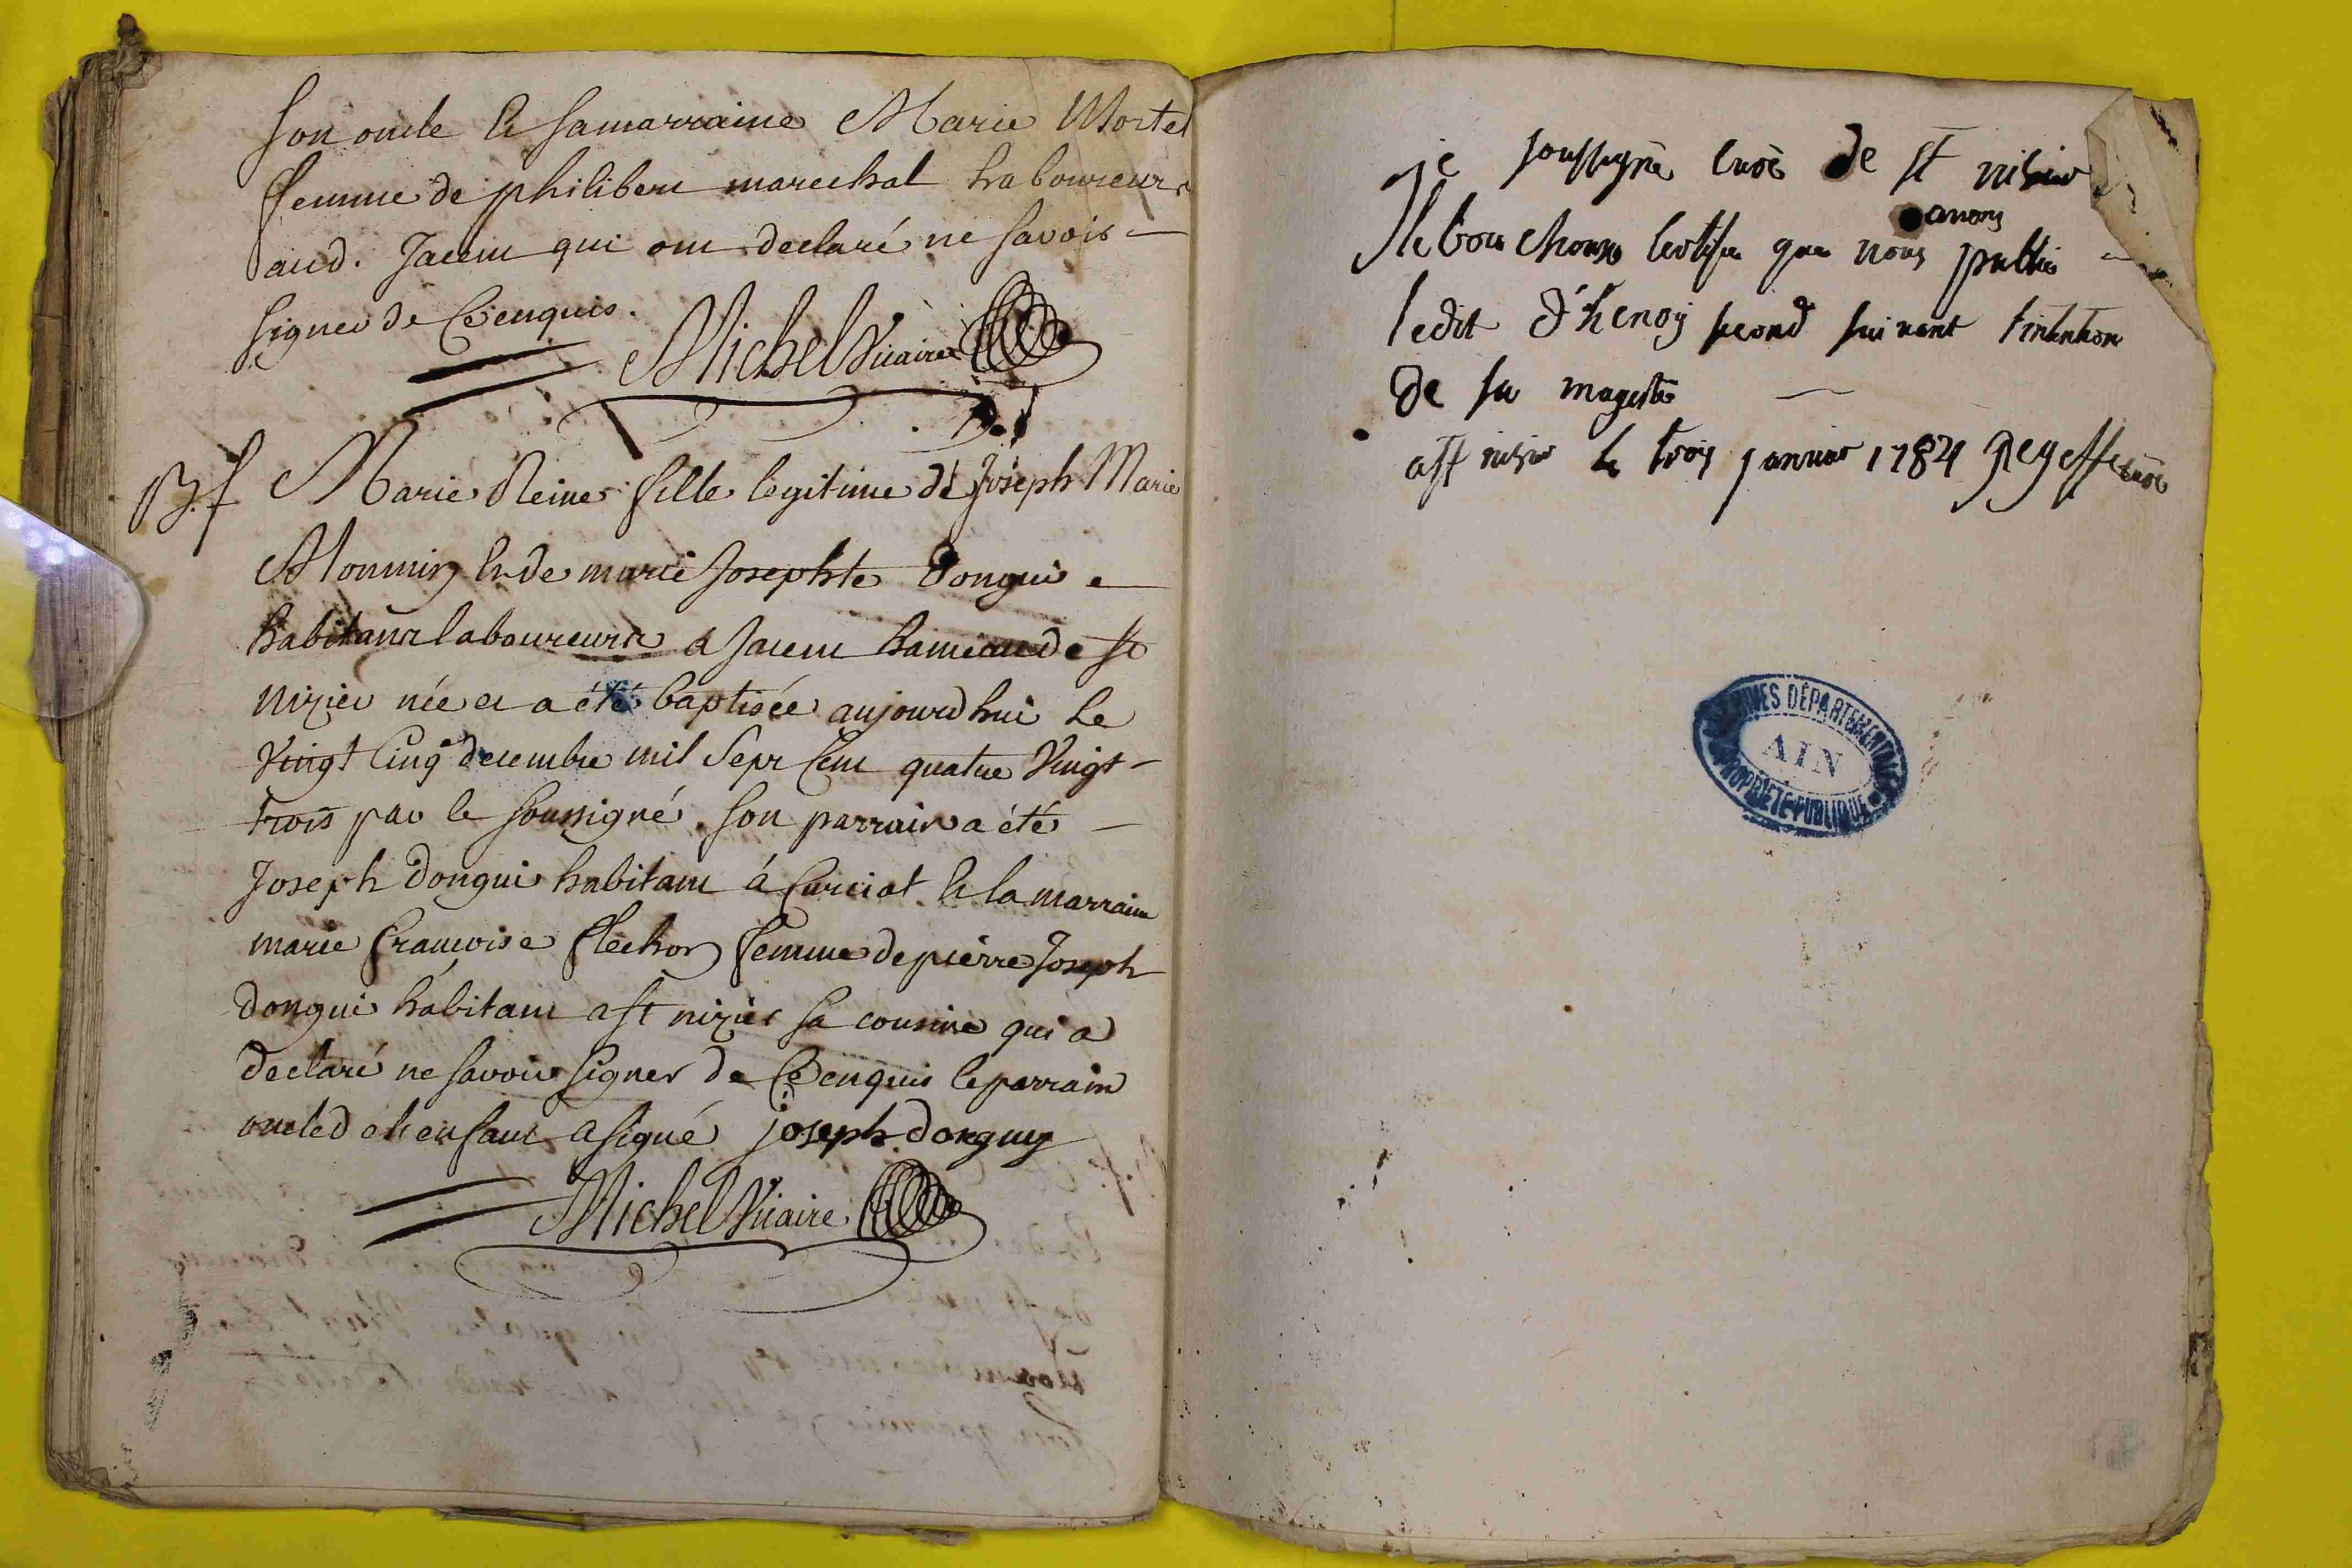 son oncle & sa marraine Marie Mortel
femme de philibert marechal laboureurs
aud. Jacem qui ont declaré ne savoir
signer de ce enquis.
Michel Vicaire
B. f
Marie Reine fille legitime de Joseph Marie
Monnin & de marie Josephte Dongui
habitans laboureurs a Jacem hameau de st
nizier née et a été baptisée aujourdhui le
vingt cinq decembre mil sept cent quatre vingt
trois par le soussigné. son parrain a été
Joseph dongui habitant á Curciat & la marraine
marie francoise flechon femme de pierre Joseph
dongui habitant a st nizier sa cousine qui a
declaré ne savoir signer de ce enquis le parrain
oncle de l'enfant a signé joseph donguy
Michel Vicaire
je soussigné curé de st nisier
avons
le bouchoux certifie que nous publié
ledit d'henry second suivant lintention
de sa magesté
a st nisier le trois janvier 1784 curé
ARCHIVES DÉPARTEMENTALES
AIN
PROPRIÉTÉ PUBLIQUE